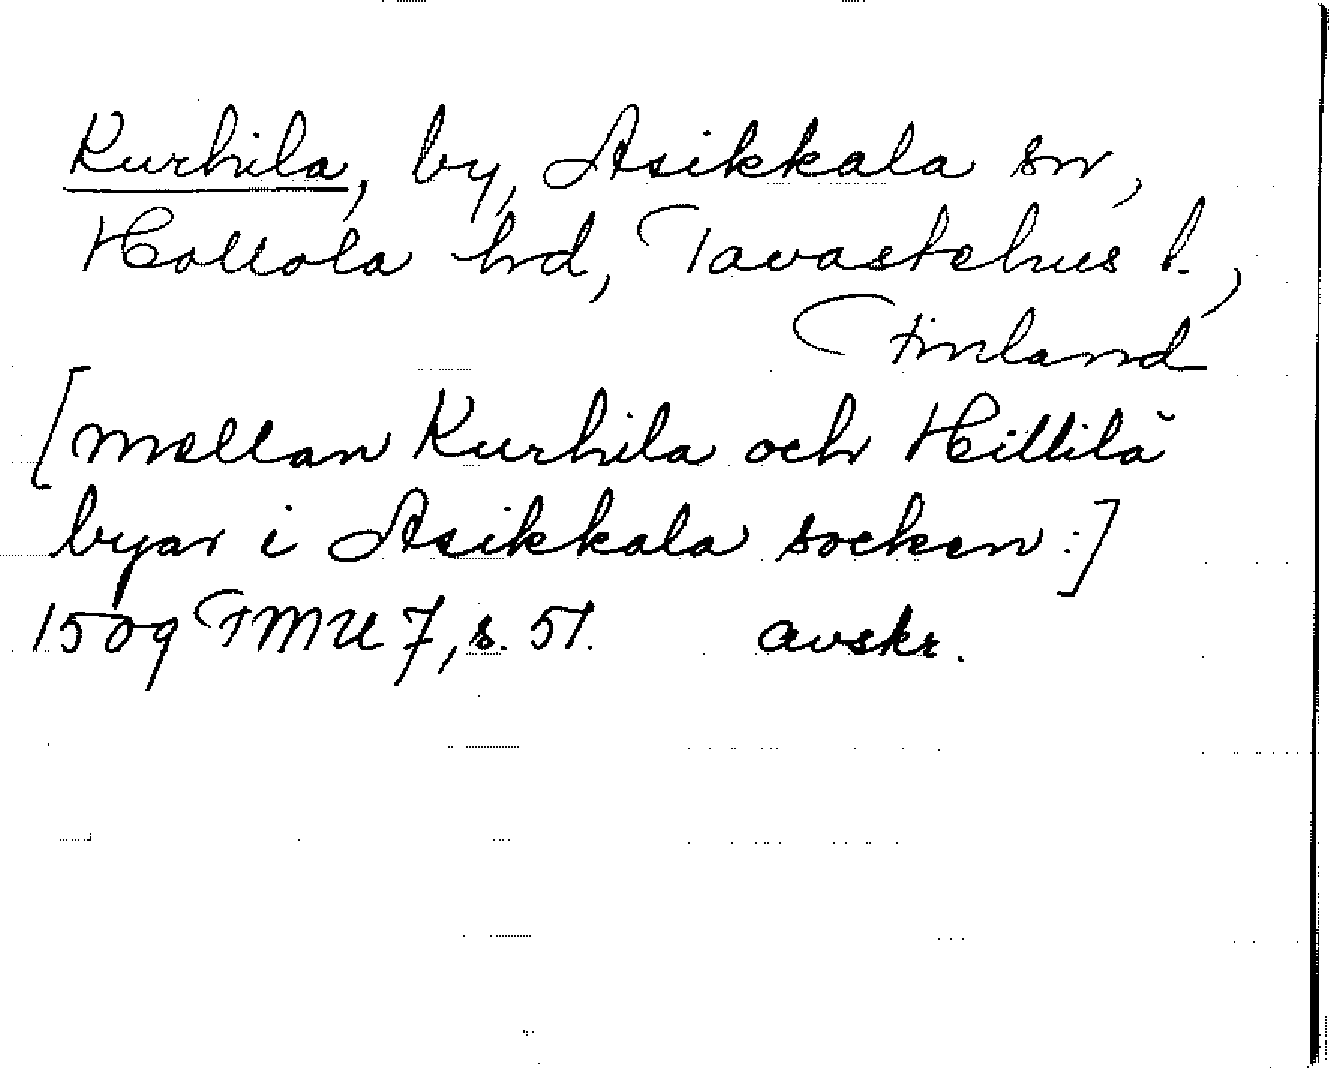 Kurhila, by, Asikkala sn,
Hollola hd, Tavastehus l.,
Finland
[mellan Kurhila och Hillilä
byar i Asikkala socken:]
1509 FMU 7, s. 51. avskr.